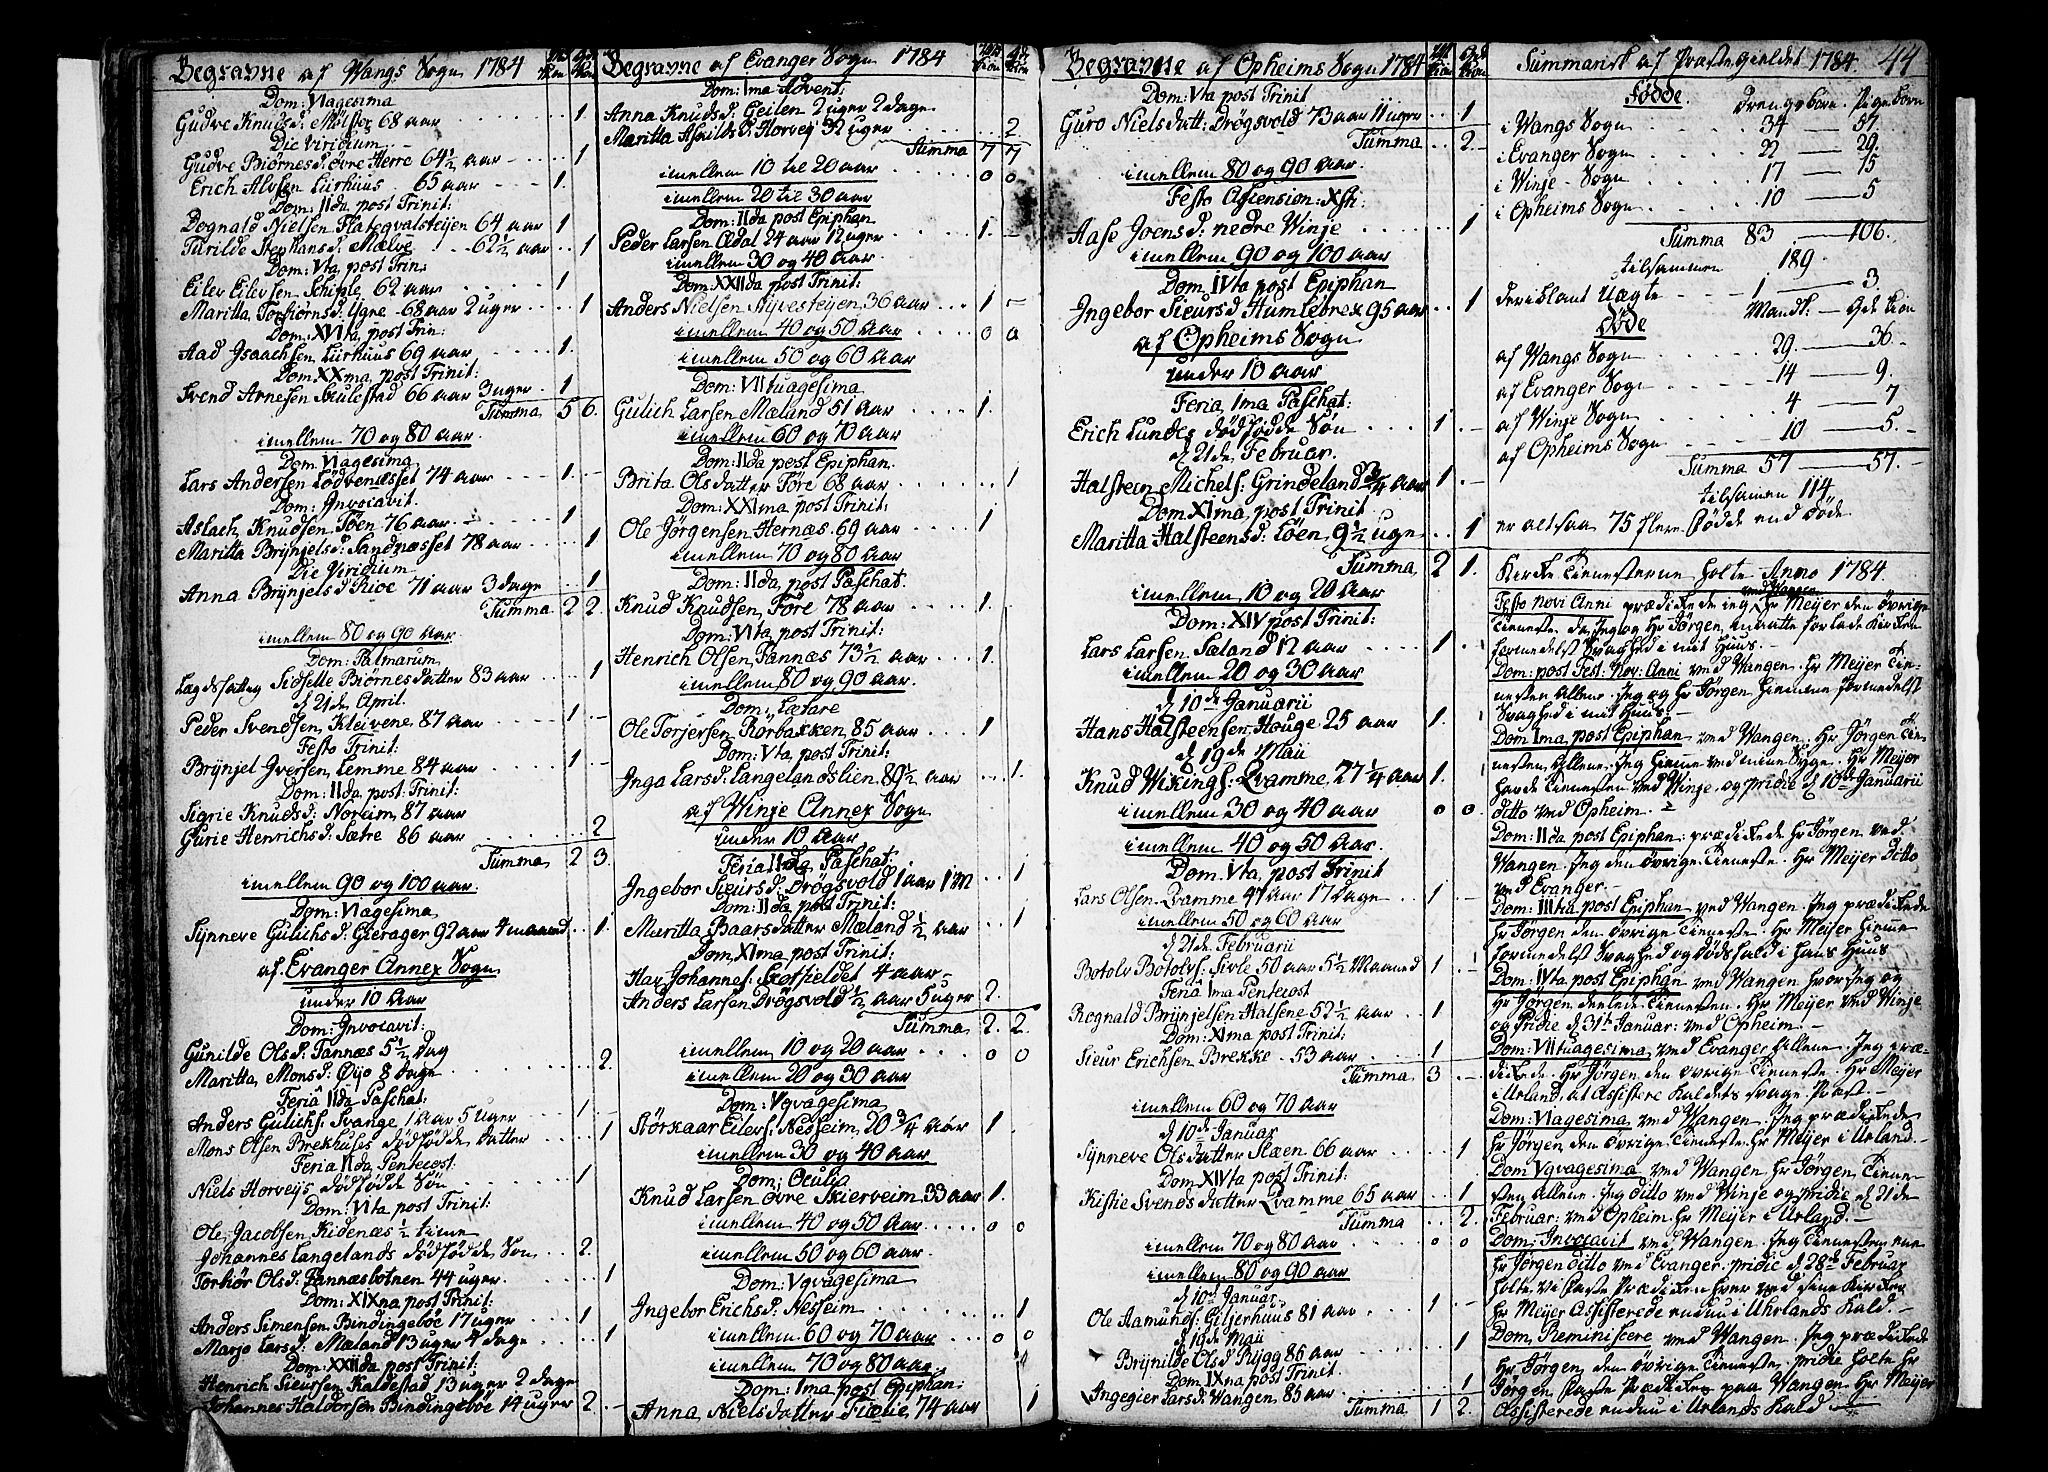 Begravne af Wangs Sogn 1784
Dom: VIagesima
Gudve Knudsd: Mølster 68 aar 1
Die Viridium
Gudve Biørnesd: øvre Herre 64½ aar 1
Erich Alvsen Lirhuus 65 aar 1.
Dom: IIda post Trinit:
Dognald Nielsen Flateqvalsteijen 64 aar 1
Turilde Stephansd: Mælve 62½ aar 1
Dom: Vta post Trin:
Eilev Eilevsen Schiple 62 aar 1
Maritta Torbiørnsd: Ygre 68 aar 2 uger 1
Dom: XVIta post Trin:
Aad Jsaachsen Lirhuus 69 aar 1.
Dom XXma post Trinit:
Svend Arnesen Skulestad 66 aar 3 uger 1
Summa 5 6.
imellem 70 og 80 aar
Dom: VIagesima
Lars Andersen Lødvenæsset 74 aar 1.
Dom: Jnvocavit.
Aslach Knudsen Tøen 76 aar 1
Maritta Brÿnjelsd: Sandnæsset 78 aar 1
Die Viridium
Anna Brÿnjelsd Rioe 71 aar 3 dage 1
Summa 2 2.
imellem 80 og 90 Aar
Dom: Palmarum
Lægdsfattig Sidsele Biørnesdatter 83 aar 1
d 21de April.
Peder Svendsen Kleivene 87 aar 1
Festo Trinit:
Brÿnjel Jversen Lemme 84 aar 1
Dom: IIda post Trinit:
Sigrie Knudsd: Noreim 87 aar
Gurie Henrichsd: Sætre 86 aar 2
Summa 2 3.
imellem 90 og 100 aar.
Dom: VIagesima
Sÿnneve Gulichsd: Gierager 92 aar 4 maaned 1.
af Evanger Annex Sogn
under 10 Aar
Dom: Jnvocavit:
Gunilde Olsd: Fannæs 5½ dag
Maritta Monsd: Øÿo 8 dage 2.
Feria IIda Paschat:
Anders Gulichs: Svange 1 Aar 5 Uger 1
Mons Olsen Brekhuses dødfødde datter 1
Feria IIda Pentecost:
Niels Horveÿs dødfødde Søn 1
Dom: VIta post Trinit:
Ole Jacobsen Kidenæs ½ time
Johannes Langelands dødfødde Søn 2.
Torbør Olsd: Fannæsbotnen 44 uger. 1
Dom: XIXna post Trinit:
Anders Simensen Bindingebøe 17 uger 1
Marjo Larsd: Mæland 13 uger 4 dage 1
Dom: XXIIda post Trinit:
Henrich Sieursen Kaldestad 13 uger 2 dage
Johannes Haldorsen Bindingebøe 14 uger 2.
Begravne af Evanger Sogn 1784
Dom: Ima Advent:
Anna Knudsd: Geilen 2 uger 2 dage
Maritta Asvilds d: Horveÿ 32 uger 2
Summa 7 7
imellem 10 til 20 aar 0 0
imellem 20 til 30 aar
Dom: IIda post Epiphan
Peder Larsen Ædal 24 aar 12 uger 1.
imellem 30 og 40 aar
Dom: XXIIda post Trinit:
Anders Nielsen Nÿvesteÿen 36 aar 1
imellem 40 og 50 Aar 0 0
imellem 50 og 60 Aar
Dom: VIItuagesima
Gulich Larsen Mæland 51 Aar 1.
imellem 60 og 70 Aar
Dom: IIda post Epiphan.
Brita Olsdatter Føre 68 aar 1
Dom: XXIma post Trinit:
Ole Jørgensen Hernæs 69 aar 1
imellem 70 og 80 Aar
Dom: IIda post Paschat:
Knud Knudsen Føre 78 aar 1.
Dom: VIta post Trinit:
Henrich Olsen Fannæs 73½ aar 1.
imellem 80 og 90 aar.
Dom: Lætare
Ole Torjersen Rørbakken 85 aar 1
Dom: Vta post Trinit:
Jnga Larsd: Langelandslien 80½ aar 1.
af Winje Annex Sogn
under 10 Aar
Feria IIda Paschat:
Jngebor Sieursd: Drøgsvold 1 aar 1 M 1
Dom: IIda post Trinit:
Maritta Baarsdatter Mæland ½ aar 1
Dom: XIma post Trinit:
Johannes: Schotfieldet 4 aar
Anders Larsen Drøgsvold ½ aar 5 uger 2.
Summa 2. 2.
imellem 10 og 20 aar 0 0
imellem 20 og 30 Aar
Dom: Vqvagesima
Størkaar Eilevs: Nesheim 20¾ Aar 1
imellem 30 og 40 Aar
Dom: Oculi
Knud Larsen øvre Skierveim 33 aar 1.
imellem 40 og 50 Aar 0 0
imellem 50 og 60 aar
Dom: Vqvagesima
Jngebor Erichsd: Nesheim 1
imellem 60 og 70 Aar 0 0
imellem 70 og 80 aar.
Dom: Ima post Epiphan:
Anna Nielsdatter Fixlie 74 aar 1
Begravne af Opheims Sogn 1784
Dom: Vta post Trinit
Guro Nielsdatt: Drøgsvold 73 aar 11 uger 1
Summa 2
imellem 80 og 90 Aar
Festo Ascension: Xsti:
Aase Joensd: nedre Winje 1
imellem 90 og 100 aar
Dom IVta post Epiphan
Jngebor Sieursd Humlebrek 95 aar 1
af Opheims Sogn
under 10 aar
Feria Ima Paschat:
Erich Lundes dødfødde Søn 1
d 21de Februar.
Halsteen Michels: Grindeland ¾ Aar 1
Dom XIma post Trinit
Maritta Halsteensd: Løen 9½ uge 1
Summa 2 1.
imellem 10 og 20 Aar
Dom: XIV post Trinit:
Lars Larsen Sæland 12 aar 1
imellem 20 og 30 Aar
d 10de Januarii
Hans Halsteensen Houge 25 aar 1.
d 19de Maii
Knud Wikings: Qvamme 27¼ aar 1.
imellem 30 og 40 aar 0 0
imellem 40 og 50 Aar.
Dom: Vta post Trinit
Lars Olsen Qvamme 47 aar 17 dage 1
imellem 50 og 60 aar
d 21de Februarii
Botolv Botolvs: Sivle 50 aar 5½ Maaned 1
Feria Ima Pentecost
Rognald Brÿnjelsen Halsene 52½ aar 1
Dom: XIma post Trinit:
Sieur Erichsen Brekke 53 aar 1
Summa 3
imellem 60 og 70 aar
d 10de Januar
Sÿnneve Olsdatter Slæen 66 aar 1
Dom: XIVta post Trinit:
Kistie Svendsdatter Qvamme 65 aar 1
Summa 2.
imellem 70 og 80 Aar 0 0
imellem 80 og 90 aar
d 10de Januar
Ole Aamunds: Giljerhuus 81 aar 1
d 19de Maii
Brÿnilde Olsd Rÿgg 86 aar 1
Dom: IXna post Trinit.
Jngegier Larsd: Wangen 85 aar 1
Summa 1 2.
Summarisk af Præstegieldet 1784. 44
Fødde. Drengebørn. Pigebørn
i Wangs Sogn 34 — 57
i Evanger Sogn 22 — 29.
i Winje Sogn 17 — 15
i Opheims Sogn 10 — 5
Summa 83 — 106.
tilsammen 189.
deriblant Uægte 1 — 3.
Døde Mandk: — Qvekion
af Wangs Sogn 29 — 36.
af Evanger Sogn 14 — 9.
af Winje Sogn 4 — 7
af Opheims Sogn 10 — 5.
Summa 57 — 57.
tilsamen 114
er altsaa 75 flere Fødde end døde
Kirke Tienesterne holte Anno 1784.
ved Wangen
Festo Novi Anni prædikede ieg, Hr Meijer den øvrige
Tieneste da Jeg og Hr Jørgen maatte forlade Kirken
formedelst Svaghed i mit Huus.
Dom: post Fest: Nov: Anni ved Wangen. Hr Meijer Tie-
nesten Allene. Jeg og Hr Jørgen hiemme formedelst
Svaghed i mit Huus.
Dom Ima post Epiphan ved Wangen. Hr Jørgen Tie-
nesten Allene. Jeg hiemme ved mine Sÿge. Hr Meijer
havde Tienesten ved Winje, og pridie d 10de Januarii
ditto ved Opheim.
Dom: IIda post Epiphan: prædikede Hr Jørgen ved
Wangen. Jeg den øvrige Tieneste. Hr Meijer ditto
ved Evanger.
Dom: IIItia post Epiphan ved Wangen. Jeg prædikede
Hr Jørgen den øvrige Tieneste. Hr Meijer hiemme
formedelst Svaghed og dødsfald i hans Huus
Dom: IVta post Epiphan ved Wangen hvor Jeg og
Hr Jørgen deelede Tienesten. Hr Meijer ved Winje
og Pridie d 31te Januar: ved Opheim.
Dom: VIItuagesima ved Evanger Allene Jeg præ-
dikede. Hr Jørgen den øvrige Tieneste. Hr Meijer
i Urland, at Assistere Kaldets svage Præst
Dom: VIagesima ved Wangen. Jeg prædikede
Hr Jørgen den øvrige Tieneste. Hr Meijer i Urland.
Dom Vqvagesima ved Wangen. Hr Jørgen Tiene-
sten Allene. Jeg ditto ved Winje og pridie d 21de
Februar: ved Opheim. Hr Meijer i Urland.
Dom: Jnvocavit ved Wangen. Jeg Tienesten ene
Hr Jørgen ditto ved Evanger. pridie d 28de Februar
holte vi Faste Prædiken hver ved sine Kirker
Hr Meijer Assisterede endnu i Uhrlands Kald.
Dom: Reminiscere ved Wangen. Jeg prædikede
Hr Jørgen den øvrige Tieneste. pridie holte Hr
Jørgen Faste Prædiken paa Wangen. Hr Meijer
Assisterede endnu i Urlands Kald